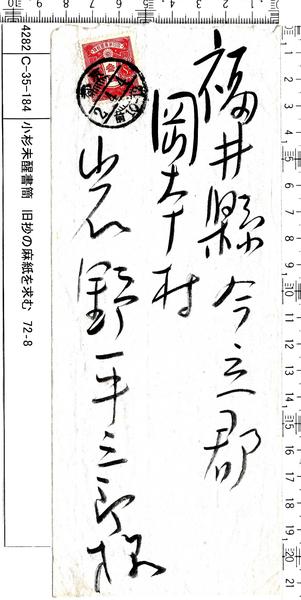 福井縣今立郡
岡本村
岩野平三郎様
4282 C-35-184 小杉未醒書簡 旧抄の麻紙を求む 72-8